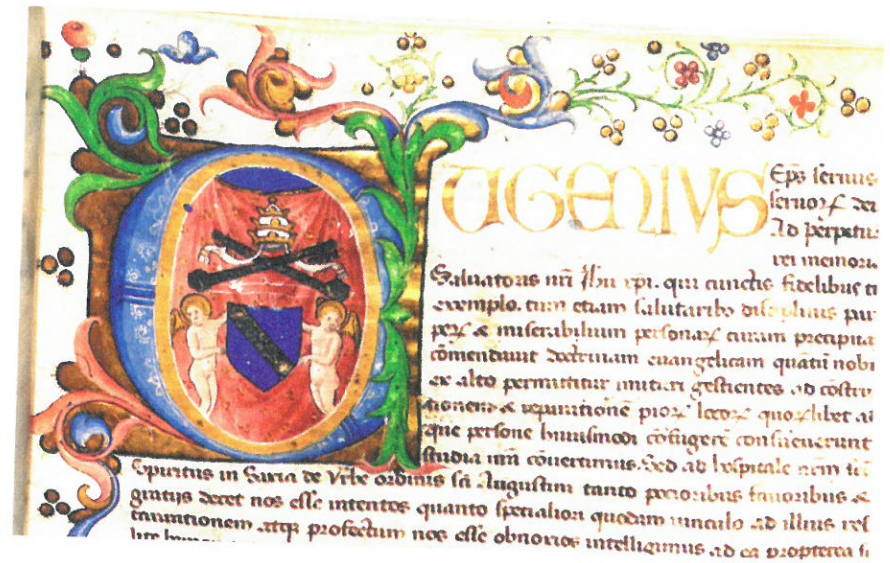 EUGENIUS Eps servus
servorꝝ dei
Ad perpetu
rei memoria
Salvatoris nri Jhu xpi. qui cunctis fidelibus
exemplo. tum etiam salutaribꝰ disciplinis pau
perꝝ & miserabilium personaꝝ curam precipua
cōmendavit doctrinam euangelicam quatū nobi
ex alto permittitur imitari gestientes ad cōstru
ctionem & reparationē pioꝝ locoꝝ quoꝝlibet ad
que persone huiusmodi cōfugere consueuerunt
studia nra cōuertimus. Sed ad hospitale nrm
Spiritus in Saxia de Urbe ordinis sā Augustini tanto pocioribus fauoribus &
gratijs decet nos esse intentos quanto speciliori quodam uinculo ad illius
atqꝫ profectum nos esse obnoxios intelligimus ad ea propterea